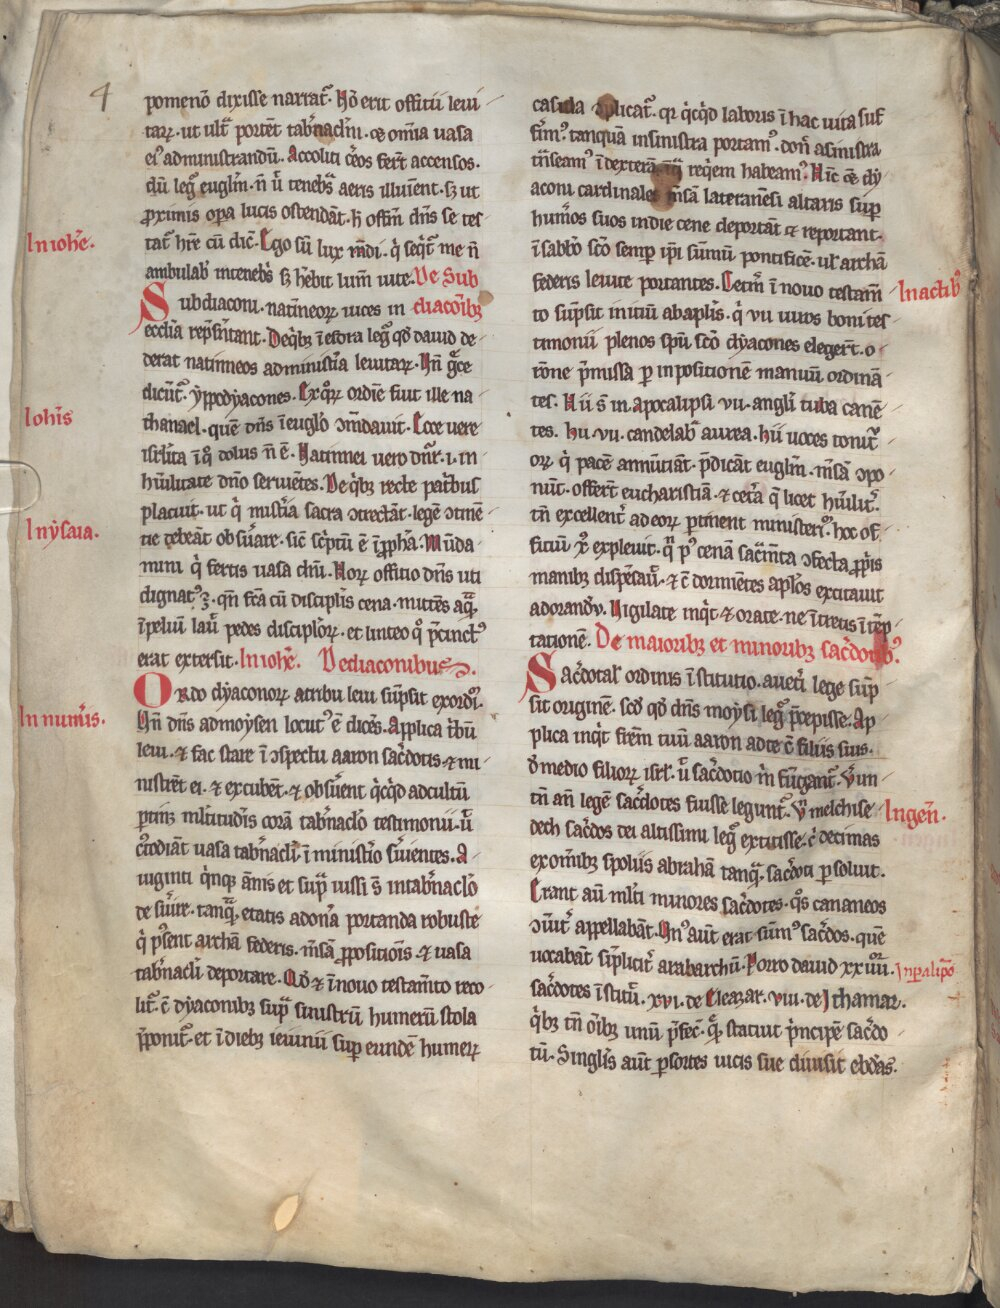 4
pomenō dixisse narrat᷑. Nō erit offitii leui
tarꝝ. ut ult᷑ portēt tab᷑nacl̄m. ⁊ om̄ia uasa
ei᷒ administrandū. Accoliti c̄eos fer᷑t accensos.
dū leg᷑ euglm̄. n̄ ū tenebs᷑ aeris illuīent. sꝫ ut
ꝓximis opa lucis ostendāt. h̄ offm̄ dn̄s se tes
tat᷑ hr̄e cū dic̄. Ego sū lux m̄di. q̇ seqt᷑ me n̄
ambulab᷑ intenebs᷑ sꝫ hēbit lum̄ uite. De Sub
Subdiaconi. natīneorꝝ uices in diacoīb᷒
ecclīa rep̄sn̄tant. Deqb᷒ ī esdra leg᷑ qd̄ dauid de
derat natinneos administīa leuitarꝝ. Hn̄ g᷑ce
dicūt᷑ ẏpodyacones. Ex qrꝝ ordīe fuit ille na
thanael. quē dn̄s ī euglo ꝯm̄dauit. Ecce uere
isrl̄ita ī q̊ dolus n̄ ē. Natinnei uero dn̄r. i. in
hūilitate dn̄o seruiētes. De qb᷒ recte patb᷒us
placuit. ut q̇ mistīa sacra ꝯtrectāt. legē ꝯtinē
tie debeāt obs̄uare. sic̄ sc̄ptū ē ī ꝓph̄a. Mūda
mini q̇ fertis uasa dn̄i. Horꝝ offitio dn̄s uti
dignat᷒ ē. qn̄ fēa cū discipl̄is cena. mittēs aq̄
ī peluū lau᷑ pedes discipl̄orꝝ. et linteo q̊ p̄cinct᷒
erat extersit. In iohe᷑. De diaconibus.
Ordo dẏaconorꝝ atribu leui sūpsit exordiū.
Hn̄ dn̄s admoẏsen locut᷒ ē dicēs. Applica t᷑bū
leui. ⁊ fac stare ī ꝯspectu aaron sac᷑dotis. ⁊ mi
nistrēt ei. ⁊ excubēt. ⁊ obs̄uent q̇cqd adcultū
ꝑtinꝫ ml̄titudīs corā tab᷑naclo testimonii. ū
c᷒todiāt uasa tab᷑nacl̄i. ī minist᷑io s̄uientes. A
uiginti qinqꝫ ānis et sup᷑ iussi s̄ intab᷑naclo
de s̄uire. tanq̄. etatis adon᷑a portanda robuste
q̇ p̄sent archā federis. m̄sā ꝓpositiōis. ⁊ uasa
tab᷑nacl̄i deportare. Qd̄ ⁊ ī nouo testam̄to reco
lit᷑. ē dẏaconib᷒ sup᷑ sinistrū humerū stola
p̄ponit᷑. et ī dieb᷒ ieiunii sup eundē humerꝝ
casula ꝯplicat᷑. qr q̇cqd laboris ī hac uita suf
fīm᷒. tanquā insinistra portam᷒. don̄ asinistra
tn̄seam᷒ ī dexterā. reqem habeam᷒. Hīc ē dẏ
aconi cardinales m̄sā lateranēsi altaris sup
hum̄os suos indie cene deportāt ⁊ reportant.
ī sabb̄o sc̄o semp ip̄i sūmū pontificē. ul᷑ archā
federis leuite portantes. Cetm̄ ī nouo testam̄
to sūpsit initiū abaplīs. q̇ vii uiros boni tes
timonii plenos spū sc̄o dẏacones eleger᷑t. o
rōne p̄missa ꝑ inpositionē manuū ordinā
tes. Hii s̄ in apocalipsi vii. angl̄i tuba canē
tes. hii vii. candelab᷑ aurea. hii uoces tonit᷑
orꝝ q̇ pacē ann̄ūtiāt. p̄dicāt euglm̄. m̄sā ꝯpo
nūt. offer᷑t eucharistiā. ⁊ cet᷑a q̄ licet hūiliit᷑.
tn̄ excellent᷑ adeorꝝ ꝑtinent ministeriū. hoc of
fitiū xp̄ expleuit. qn̄ p᷒ cenā sac᷑m̄ta ꝯfecta ꝓpiis
manib᷒ dispēsau᷑. ⁊ ē dormiētes apl̄os excitauit
adorandū. Uigilate inqt ⁊ orate. ne ītretis ī tēp
tationē. De maioribꝫ et minoribꝫ sac᷑dotib᷒.
Sac᷑dotal᷑ ordinis īstitutio. auet᷑i lege sūp
sit originē. scd̄ qd̄ dn̄s moẏsi leg᷑ p̄cepisse. Ap
plica inqt fr̄em tuū aaron adte c̄ filiis suis.
d̄ medio filiorꝝ isrl̄. ū sac᷑dotio m̄ fūgant᷑. V᷑ūn
tn̄ an̄ legē sac᷑dotes fuisse legunt᷑. V᷑n̄ melchise
dech sac᷑dos dei altissimi leg᷑ extitisse. c̄ decimas
exom̄ib᷒ spoliis abrahā tanq̄. sac᷑doti ꝑsoluit.
Erant aū ml̄ti minores sac᷑dotes. q̊s cananeos
ꝯiūt᷑ appellabāt. Un᷒ aūt erat sūm᷒ sac᷑dos. quē
uocabāt sīplicit᷑ arabarchū. Porro dauid xxiiii.
sac᷑dotes īstitū. xvi. de Eleazar. viii. de Ithamar.
qb᷒ tn̄ oīb᷒ unū p̄fec̄. q̄ statuit p̄ncipē sac᷑do
tū. Singlīs aūt ꝑsortes uicis sue diuisit ebd̄as.
In iohe᷑.
Ioh̄is
In ẏsaia.
In num̄is.
In actib᷒
In gen̄.
In paralipō